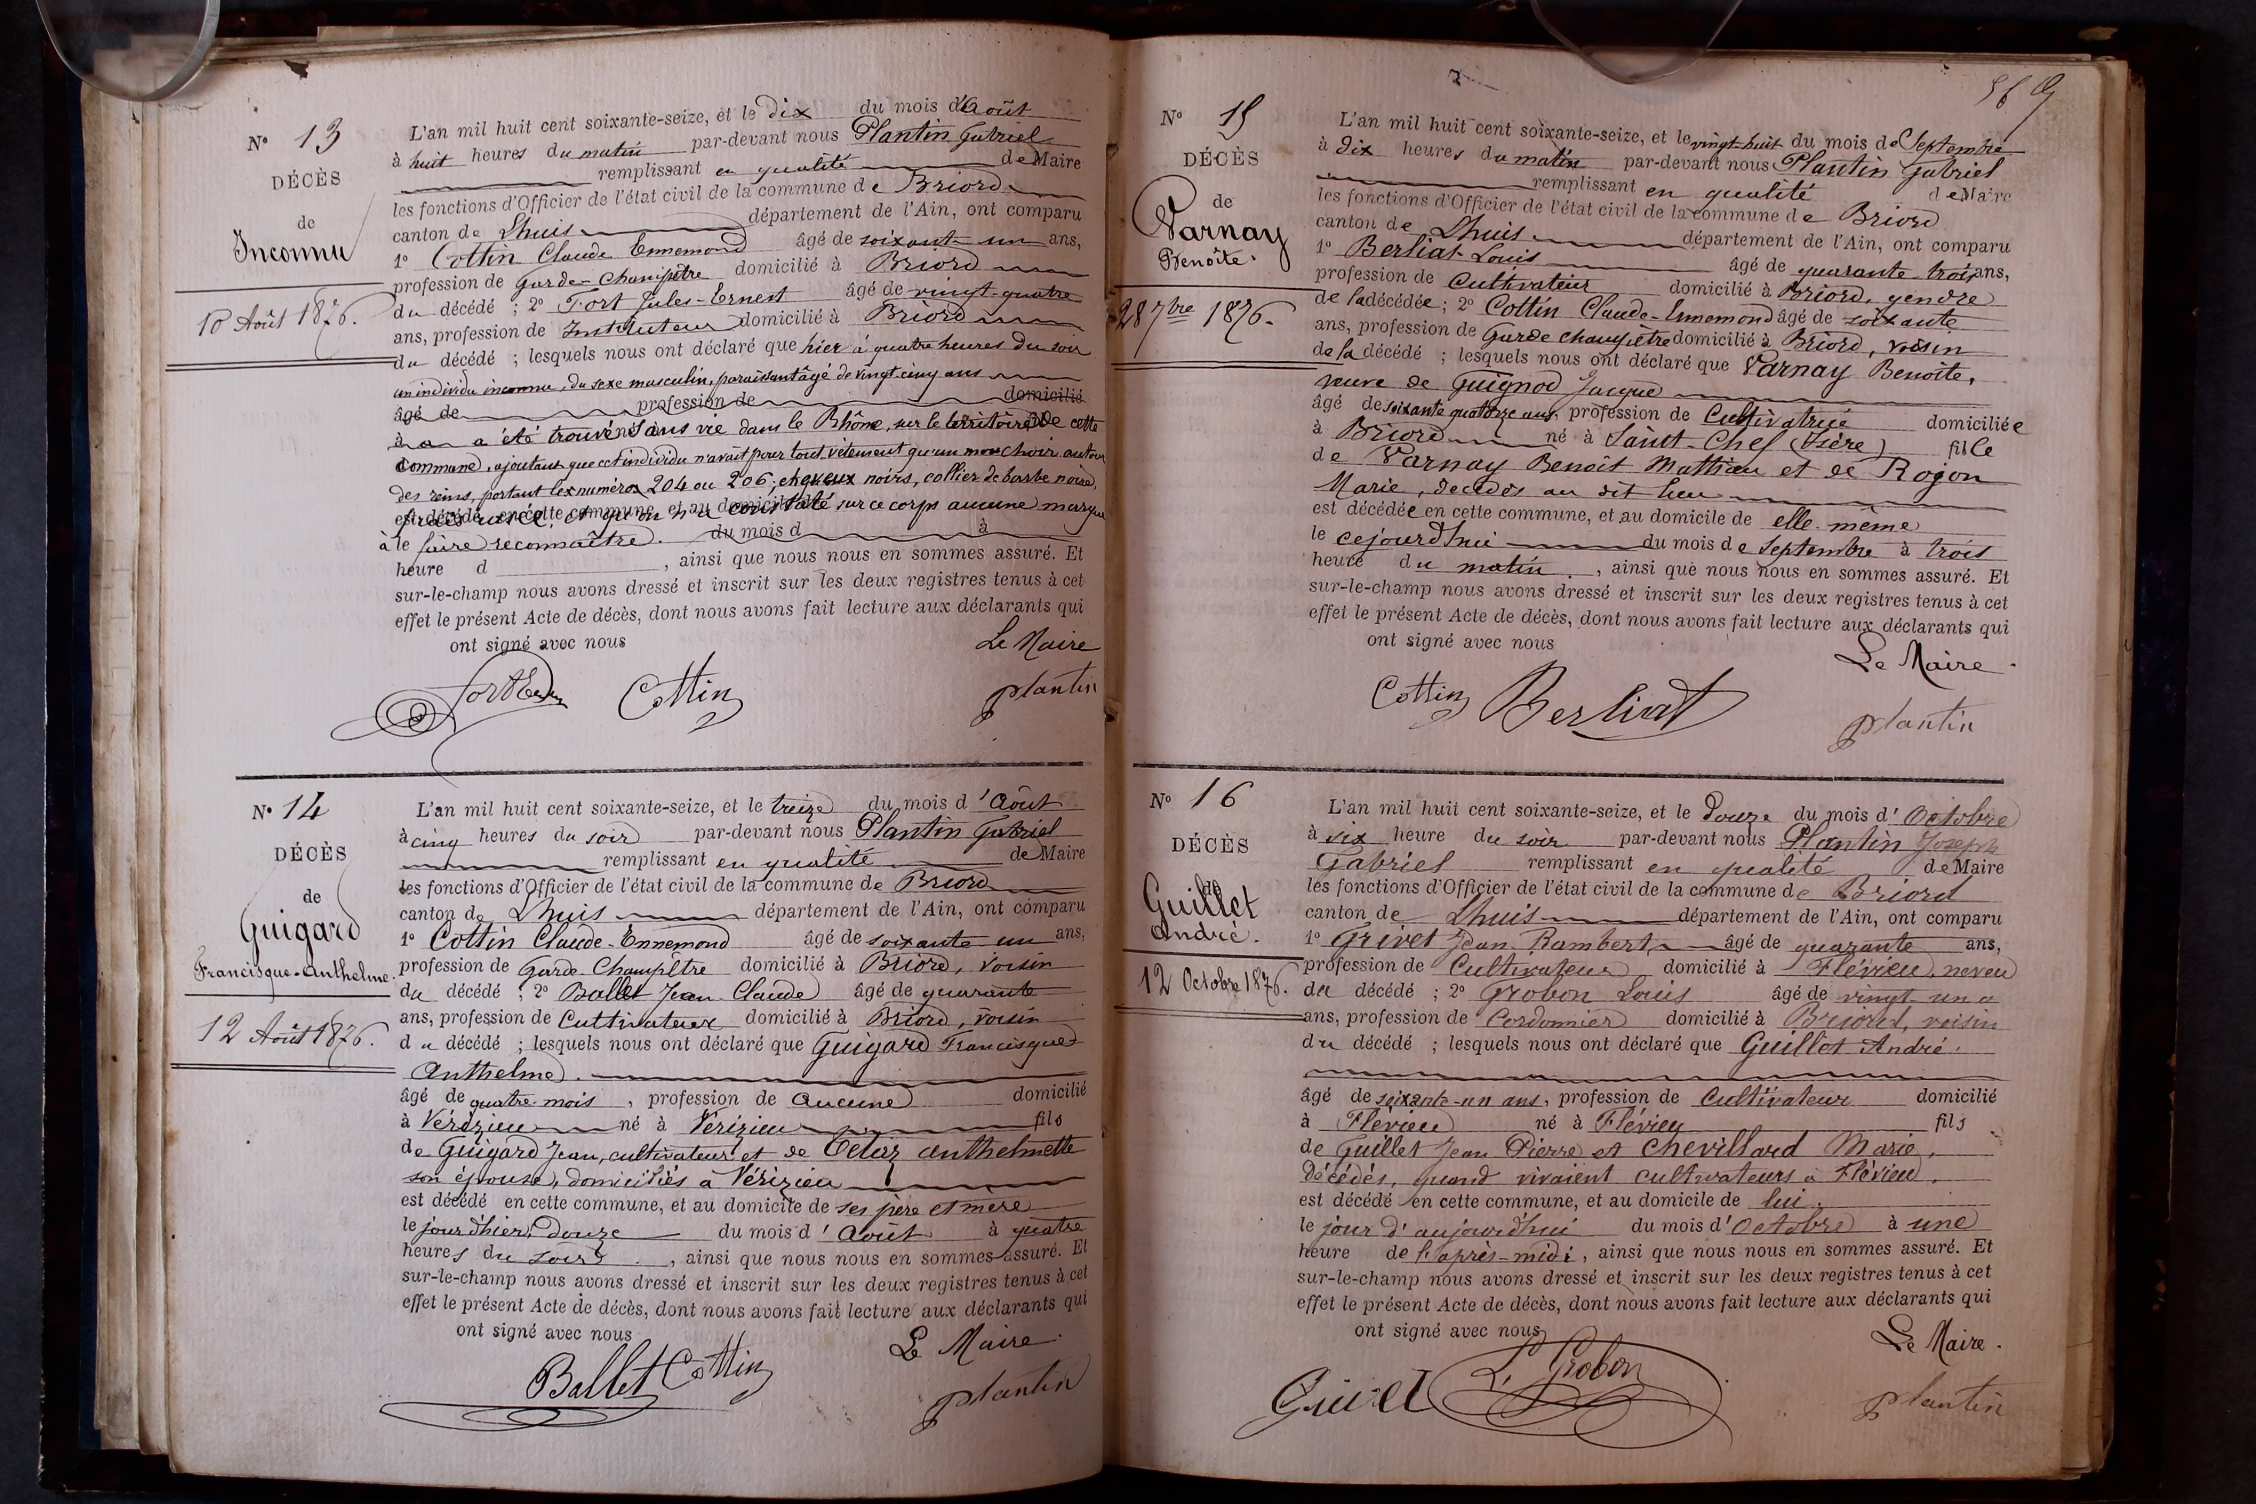 N° 13
DÉCÈS
de
Inconnu
10 Août 1876.
L'an mil huit cent soixante-seize, et le dix du mois d'Août
à huit heures du matin par-devant nous Plantin Gabriel
remplissant en qualité de Maire
les fonctions d'Officier de l'état civil de la commune de Briord
canton de Lhuis département de l'Ain, ont comparu
1° Cottin Claude Ennemond âgé de soixante un ans,
profession de Garde-Champêtre domicilié à Briord
du décédé ; 2° Fort Jules-Ernest âgé de vingt-quatre
ans, profession de Instituteur domicilié à Briord
du décédé ; lesquels nous ont déclaré que hier à quatre heures du soir
un individu inconnu, du sexe masculin, paraissant âgé de vingt-cinq ans
âgé de profession de domicilié
à a été trouvé sans vie dans le Rhône, sur le territoire de cette
commune, ajoutant que cet individu n'avait pour tout vêtement qu'un mouchoir autour
des reins, portant les numéros 204 ou 206; cheveux noirs, collier de barbe noire,
est décédé en cette commune, et au domicile de et qu'on n'a constaté sur ce corps aucune marque
à le faire reconnaître. du mois d à
heure d , ainsi que nous nous en sommes assuré. Et
sur-le-champ nous avons dressé et inscrit sur les deux registres tenus à cet
effet le présent Acte de décès, dont nous avons fait lecture aux déclarants qui
ont signé avec nous
Le Maire
Cottin
Plantin
N° 14
DÉCÈS
de
Guigard
Francisque-Anthelme.
12 Août 1876.
L'an mil huit cent soixante-seize, et le treize du mois d'Août
à cinq heures du soir par-devant nous Plantin Gabriel
remplissant en qualité de Maire
les fonctions d'Officier de l'état civil de la commune de Briord
canton de Lhuis département de l'Ain, ont comparu
1° Cottin Claude-Ennemond âgé de soixante un ans,
profession de Garde-Champêtre domicilié à Briord, voisin
du décédé ; 2° Ballet Jean Claude âgé de quarante
ans, profession de Cultivateur domicilié à Briord, voisin
du décédé ; lesquels nous ont déclaré que Guigard Francisque
Anthelme.
âgé de quatre mois, profession de Aucune domicilié
à Vérizieu né à Vérizieu fils
de Guigard Jean, cultivateur et de Anthelmette
son épouse, domiciliés à Vérizieu
est décédé en cette commune, et au domicile de ses père et mère
le jour d'hier, douze du mois d'Août à quatre
heures du soir , ainsi que nous nous en sommes assuré. Et
sur-le-champ nous avons dressé et inscrit sur les deux registres tenus à cet
effet le présent Acte de décès, dont nous avons fait lecture aux déclarants qui
ont signé avec nous
Le Maire.
Ballet Cottin
Plantin
569
N° 15
DÉCÈS
de
Varnay
Benoîte.
28 7bre 1876.
L'an mil huit cent soixante-seize, et le vingt-huit du mois de Septembre
à dix heures du matin par-devant nous Plantin Gabriel
remplissant en qualité de Maire
les fonctions d'Officier de l'état civil de la commune de Briord
canton de Lhuis département de l'Ain, ont comparu
1° Berliat Louis âgé de quarante trois ans,
profession de Cultivateur domicilié à Briord, gendre
de la décédée ; 2° Cottin Claude-Ennemond âgé de soixante
ans, profession de Garde champêtre domicilié à Briord, voisin
de la décédé ; lesquels nous ont déclaré que Varnay Benoîte,
veuve de Guignod Jacque
âgé de soixante quatorze ans, profession de Cultivatrice domiciliée
à Briord né à Saint-Chef (Isère) fille
de Varnay Benoît Mathieu et de Rojon
Marie, décédés au dit lieu
est décédée en cette commune, et au domicile de elle-même
le cejourd'hui du mois de Septembre à trois
heure du matin , ainsi que nous nous en sommes assuré. Et
sur-le-champ nous avons dressé et inscrit sur les deux registres tenus à cet
effet le présent Acte de décès, dont nous avons fait lecture aux déclarants qui
ont signé avec nous
Le Maire.
Cottin Berliat
Plantin
N° 16
DÉCÈS
de
Guillet
André.
12 Octobre 1876.
L'an mil huit cent soixante-seize, et le Douze du mois d'Octobre
à six heure du soir par-devant nous Plantin Joseph
Gabriel remplissant en qualité de Maire
les fonctions d'Officier de l'état civil de la commune de Briord
canton de Lhuis département de l'Ain, ont comparu
1° Grivet Jean Rambert, âgé de quarante ans,
profession de Cultivateur domicilié à Flévieu, neveu
du décédé ; 2° Grobon Louis âgé de vingt un
ans, profession de Cordonnier domicilié à Briord, voisin
du décédé ; lesquels nous ont déclaré que Guillet André.
âgé de soixante-un ans, profession de Cultivateur domicilié
à Flévieu né à Flévieu fils
de Guillet Jean Pierre et Chevillard Marie,
Décédés, quand vivaient cultivateurs à Flévieu.
est décédé en cette commune, et au domicile de lui.
le jour d'aujourd'hui du mois d'Octobre à une
heure de l'après-midi, ainsi que nous nous en sommes assuré. Et
sur-le-champ nous avons dressé et inscrit sur les deux registres tenus à cet
effet le présent Acte de décès, dont nous avons fait lecture aux déclarants qui
ont signé avec nous
Le Maire.
Grivet L. Grobon
Plantin